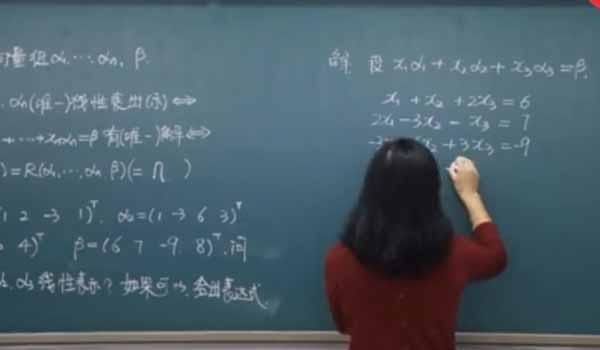 向量组α₁,…αₙ, β.
αₙ(唯一)线性表出(示)⟺
+…+xₙαₙ=β有(唯一)解⟺
)=R(α₁,…,αₙ,β)(=n )
1 2 -3 1)ᵀ, α₂=(1 -3 6 3)ᵀ
4)ᵀ β=(6 7 -9 8)ᵀ,问
α₃线性表示?如果可以,给出表达式
解 设 x₁α₁+x₂α₂+x₃α₃=β,
x₁+x₂+2x₃=6
2x₁-3x₂-x₃=7
+3x₃=-9